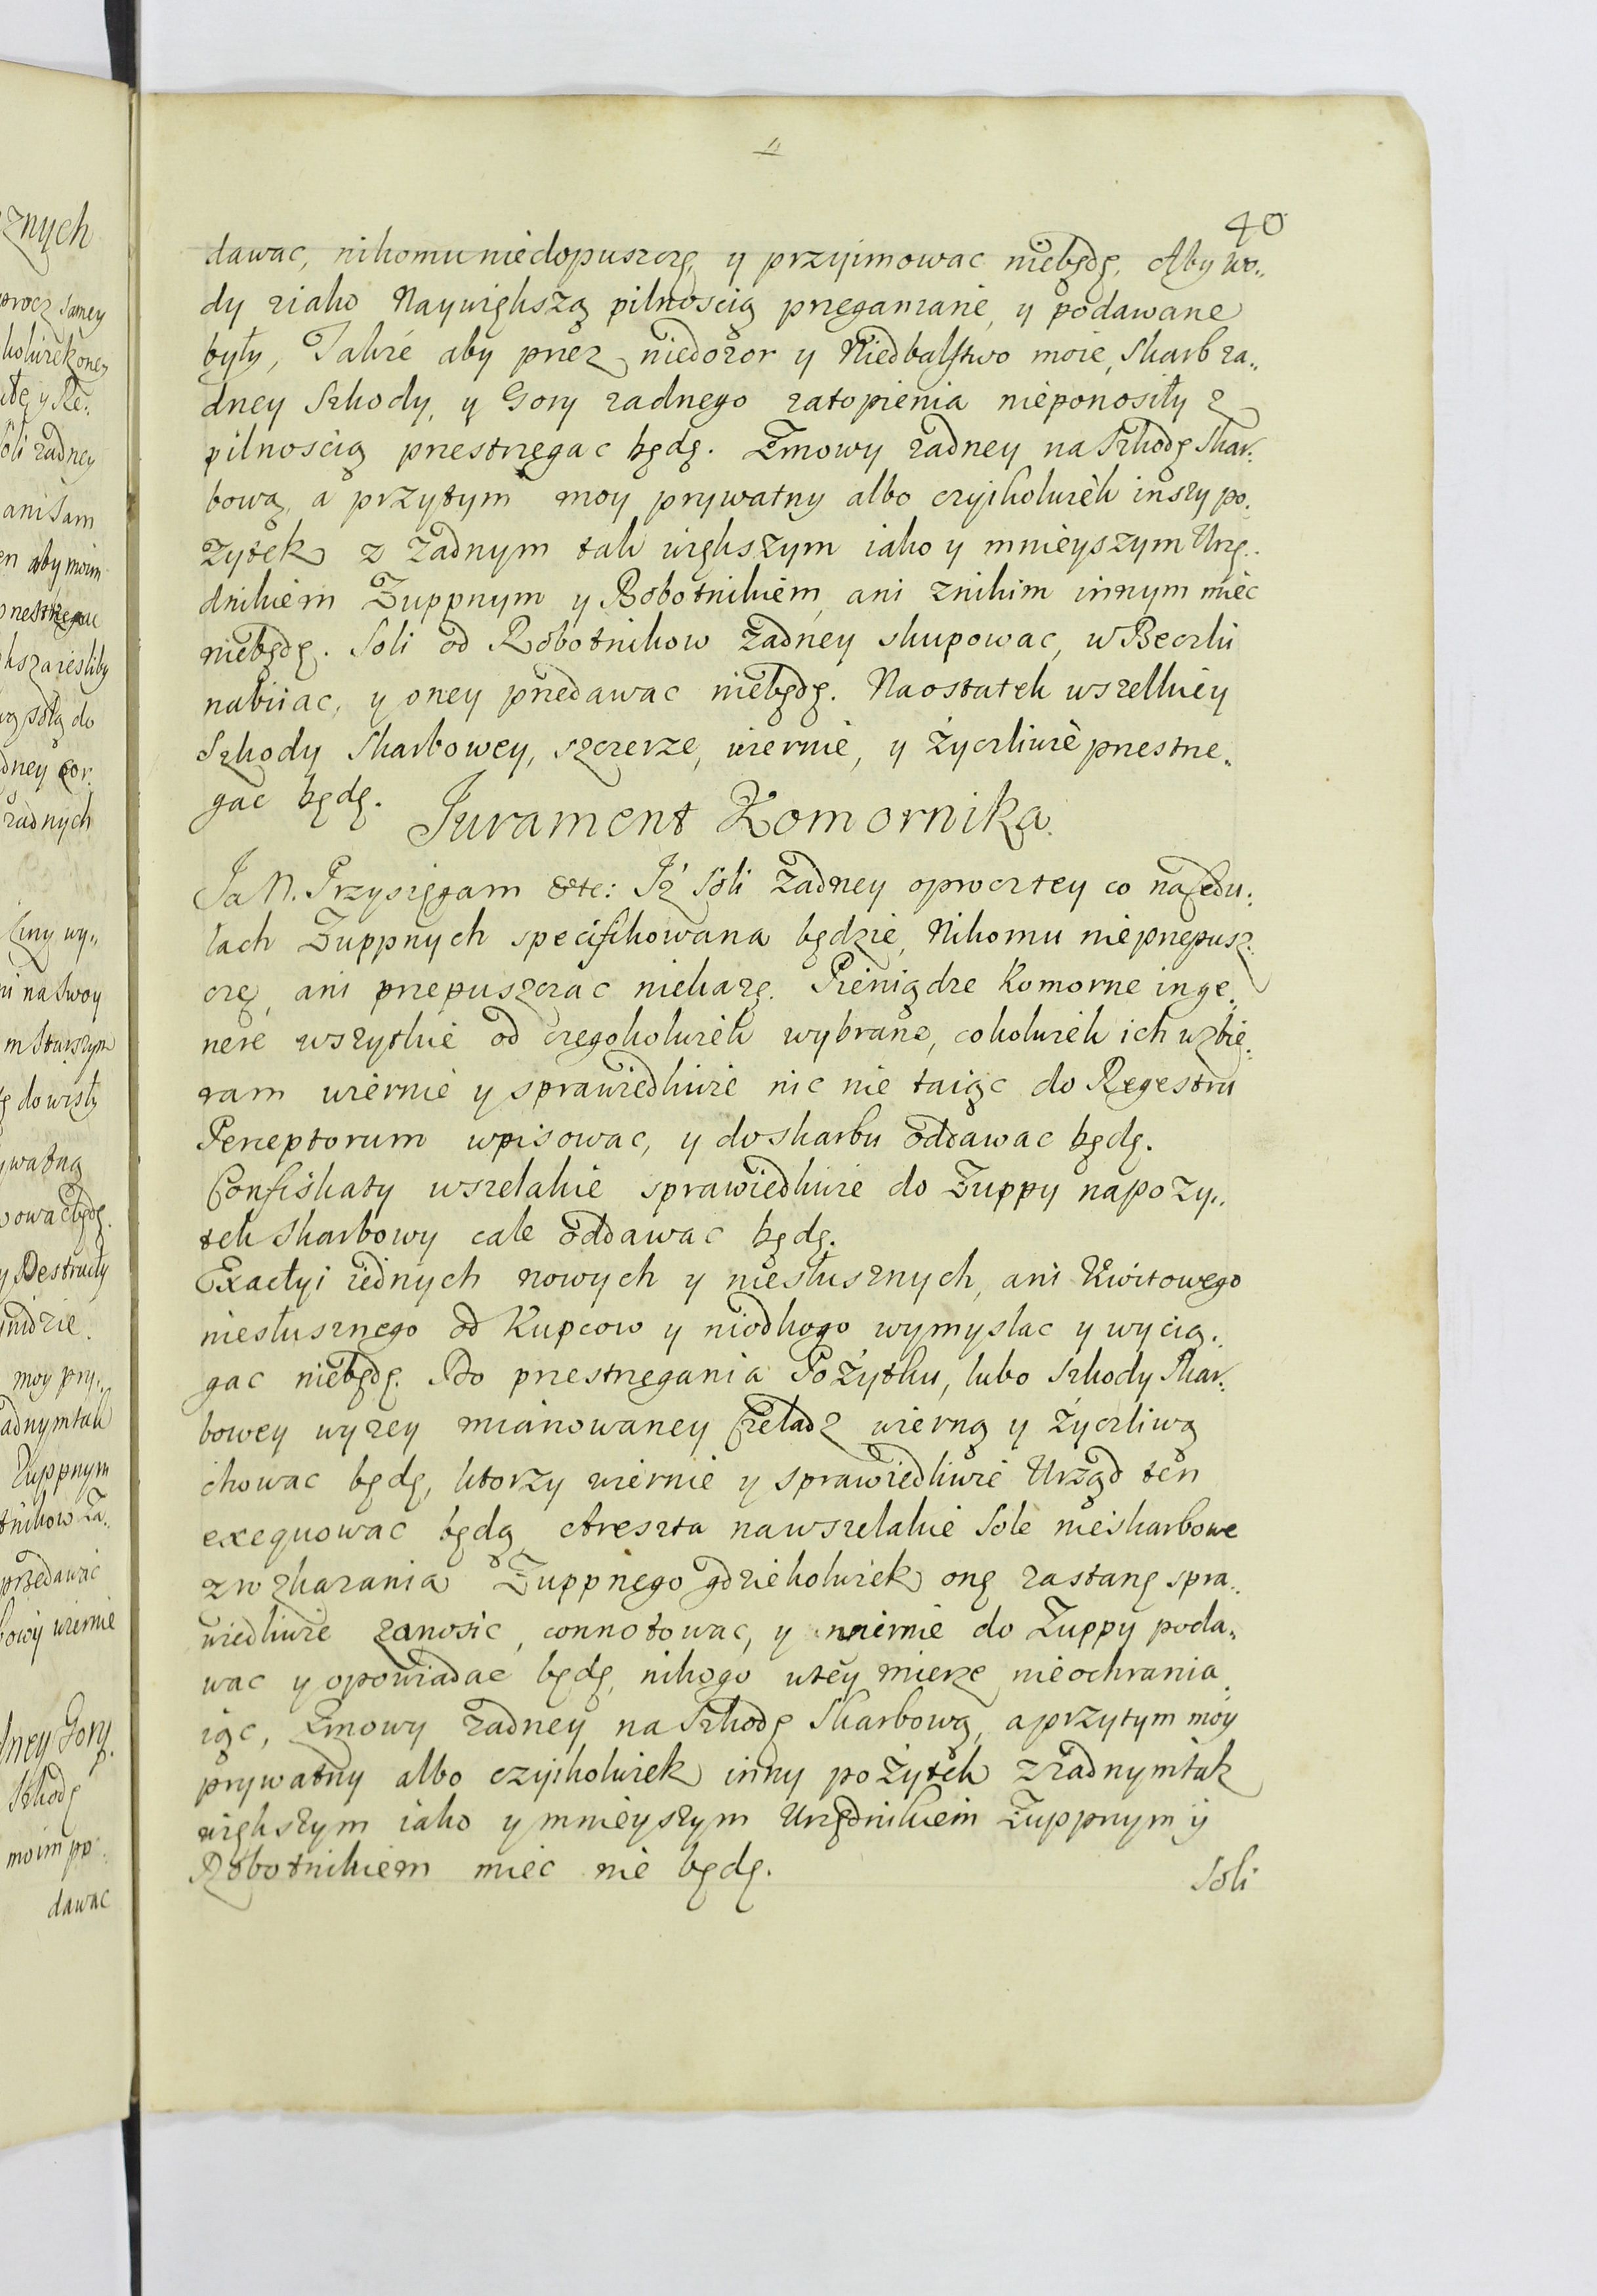 40
dawac, nikomu niedopuszczę, y przyimowac niebędę, Aby wo„
dy ziako Naywiększą pilnoscią przeganiane, y podawane
były, Takze aby przez niedozor y Niedbalstwo moie, Skarb za„
dney Szkody, y Gory zadnego zatopienia nieponosiły z
pilnoscią przestrzegac będę. Zmowy zadney na Szkodę Skar„
bową, a przytym moy prywatny albo czyikolwiek inszy po„
zytek z zadnym tak większym iako y mnieyszym Urzę„
dnikiem Zuppnym y Robotnikiem, ani znikim innym miec
niebędę. Soli od Robotnikow zadney skupowac, w Beczki
nabiiac, y oney przedawac niebędę. Naostatek wszelkiey
Szkody Skarbowey, szczerze, wiernie, y życzliwie przestrze„
gac będę.
Jurament Komornika.
Ja N. Przysięgam &tc: Iż Soli zadney oprocz tey co na Cedu„
łach Zuppnych specifikowana będzie, Nikomu nieprzepusz„
czę, ani przepuszczac niekażę. Pieniądze Komorne inge„
nere wszytkie od czegokolwiek wybrane, cokolwiek ich wzbie„
ram wiernie y sprawiedliwie nic nie taiąc do Regestru
Perceptorum wpisowac, y do skarbu oddawac będę.
Confiskaty wszelakie sprawiedliwie do Zuppy na pozy„
tek Skarbowy cale oddawac będę.
Exactyi iednych nowych y niesłusznych, ani Kwitowego
niesłusznego od Kupcow y niodkogo wymyslac y wycią„
gac niebędę. Do przestrzegania Pożytku, lubo szkody Skar„
bowey wyzey mianowaney Czeladz wierną y życzliwą
chowac będę, ktorzy wiernie y sprawiedliwie Urząd ten
exequowac będą, Areszta na wszelakie Sole nieskarbowe
z rozkazania Zuppnego gdziekolwiek onę zastanę spra„
wiedliwie zanosic, connotowac, y wiernie do Zuppy poda„
wac y opowiadac będę, nikogo wtey mierze nieochrania„
iąc, Zmowy zadney na Szkodę Skarbową, a przytym moy
prywatny albo czyikolwiek inny pożytek z zadnym tak
większym iako y mnieyszym Urzędnikiem Zuppnym y
Robotnikiem miec nie będę.
Soli